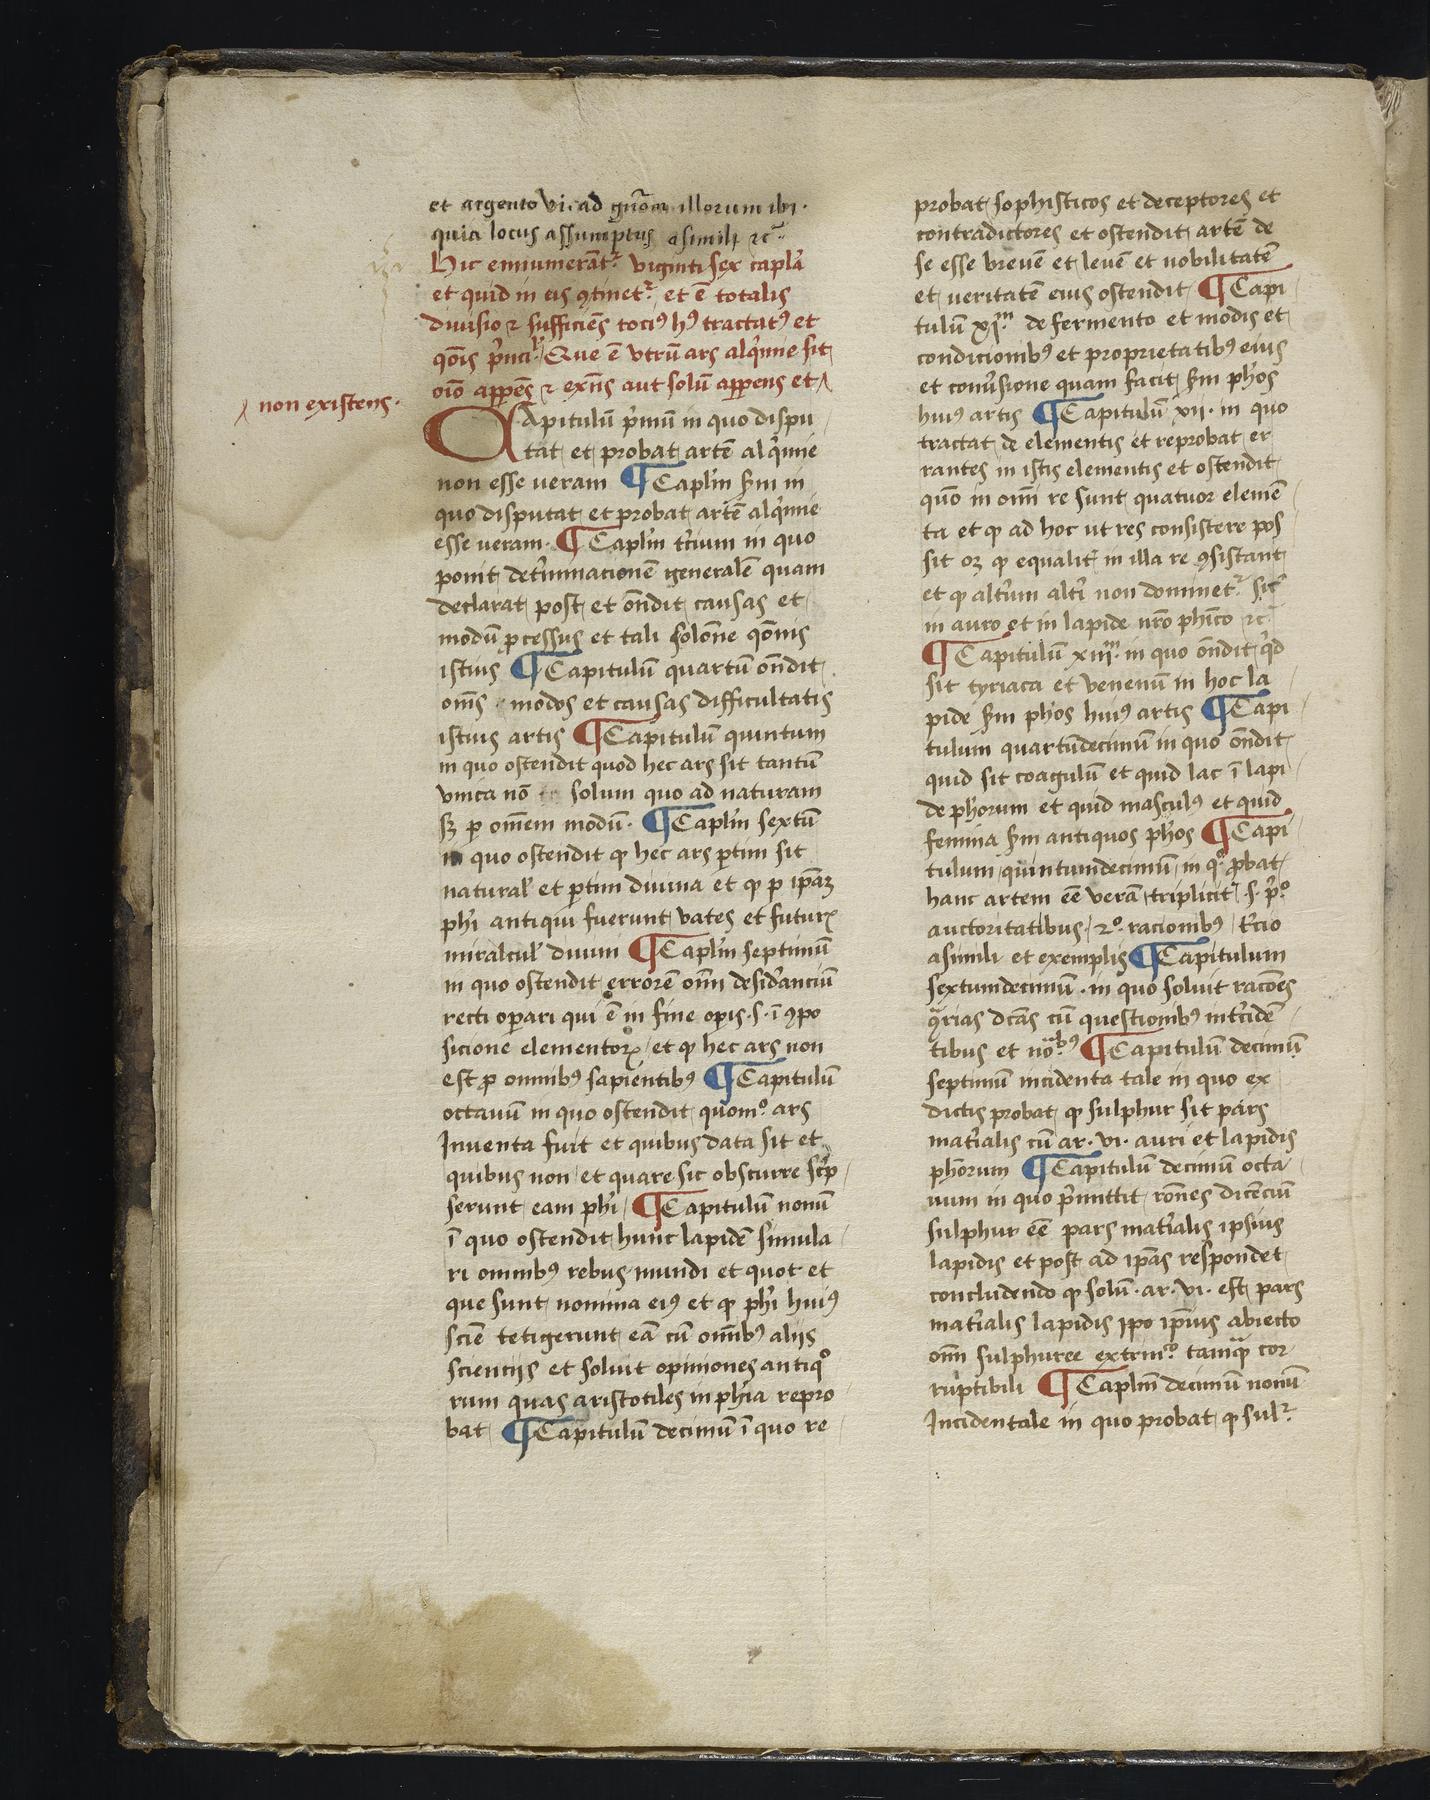 et argento vi. ad gñõm illorum ibi.
quia locus assumptus asimili ⁊c̃.
Hic enumerãt᷑ viginti sex caplã
et quid in eis ꝯtinet᷑. et ẽ totalis
diuisio ⁊ sufficiẽs toci⁹ hꝰ tractat⁹ et
qõis p̃ncil᷑. Que ẽ vtrũ ars alq̃mie sit
oĩo apꝑẽs ⁊ exñs aut solũ apꝑens et ʌ
ʌ non existens.
CApitulũ p̃mũ in quo dispu
tat et probat artẽ alq̃mie
non esse ueram ¶ Caplm̃ sm̃ in
quo disputat et probat artẽ alq̃mie
esse ueram. ¶ Caplm̃ tc̃ium in quo
ponit det̃minacionẽ generalẽ quam
declarat post et oñdit causas et
modũ ꝓcessus et tali solõne qõnis
istius ¶ Capitulũ quartũ oñdit
om̃s modos et causas difficultatis
istius artis ¶ Capitulũ quintum
in quo ostendit quod hec ars sit tantũ
vnica nõ solum quo ad naturam
sꝫ ꝑ om̃em modũ. ¶ Caplm̃ sextũ
in quo ostendit ꝙ hec ars ꝑtim sit
natural᷑ et ꝑtim diuina et ꝙ ꝑ ip̃aꝫ
ph̃i antiqui fuerunt vates et futurꝝ
miralcul᷑ diuini ¶ Caplm̃ septimũ
in quo ostendit errorẽ om̃i desid̃anciũ
recti oꝑari qui ẽ in fine oꝑis .s. ĩ ꝯpo
sicione elementoꝝ et ꝙ hec ars non
est ꝓ omnib⁹ sapientib⁹ ¶ Capitulũ
octauũ in quo ostendit quom̊. ars
Inuenta fuit et quibus data sit et
quibus non et quare sic obscurre sc̃p
serunt eam ph̃i ¶ Capitulũ nonũ
ĩ quo ostendit hunc lapidẽ simula
ri omnib⁹ rebus mundi et quot et
que sunt nomina ei⁹ et ꝙ ph̃i hui⁹
sciẽ tetigerunt eã cũ om̃ib⁹ alijs
scientijs et soluit opiniones antiq̊
rum quas aristotiles in ph̃ia repro
bat ¶ Capitulũ decimũ ĩ quo re
probat sophisticos et deceptores et
contradictores et ostendit artẽ de
se esse breuẽ et leuẽ et nobilitatẽ
et ueritatẽ eius ostendit ¶ Capi
tulũ xj.ᵐ de fermento et modis et
condicionib⁹ et proprietatib⁹ eius
et conũsione quam facit sm̃ ph̃os
hui⁹ artis ¶ Capitulũ xii. in quo
tractat de elementis et reprobat er
rantes in istis elementis et ostendit
quõ in om̃i re sunt quatuor elemẽ
ta et ꝙ ad hoc ut res consistere pos
sit oꝫ ꝙ equalit̃ in illa re ꝯsistant
et ꝙ alt̃um alt̃i non dominet᷑ sic̃
in auro et in lapide nr̃o ph̃ico ⁊c̃
¶ Capitulũ xiij.ᵐ in quo oñdit qͥd
sit tyriaca et venenũ in hoc la
pide sm̃ ph̃os hui⁹ artis ¶ Capi
tulum quartũdecimũ in quo oñdit
quid sit coagulũ et quid lac ĩ lapi
de ph̃orum et quid mascul⁹ et quid
femina sm̃ antiquos ph̃os ¶ Capi
tulum quintumdecimũ in q̊ ꝓbat
hanc artem eẽ verã triplicit᷑ .s. p̃º.
auctoritatibus. 2º. racionib⁹ t̃cio
asimili et exemplis ¶ Capitulum
sextumdecimũ. in quo soluit racões
ꝯ̃rias dc̃as cũ questionib⁹ int̃cidẽ
tibus et no᷑ᵇ⁹ ¶ Capitulũ decimũ
septimũ incidenta tale in quo ex
dictis probat ꝙ sulphur sit pars
mat̃ialis cũ ar. vi. auri et lapidis
ph̃orum ¶ Capitulũ decimũ octa
uum in quo p̃mittit rões dicẽciũ
sulphur eẽ pars mat̃ialis ipsius
lapidis et post ad ip̃as respondet
concludendo ꝙ solũ .ar. vi. est pars
mat̃ialis lapidis ip̃o ip̃ius abiecto
om̃i sulphuree extrin̊. tamq̃ cor
ruptibili ¶ Caplm̃ decimũ nonũ
Incidentale in quo probat ꝙ sul᷑.